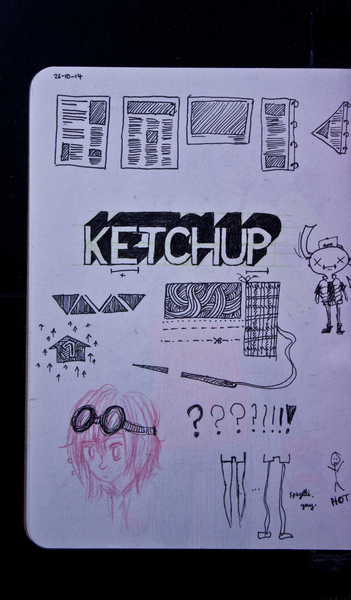 26-10-14
KETCHUP
? ? ? ? ! ! !
Spagetti,
yay.
HOT